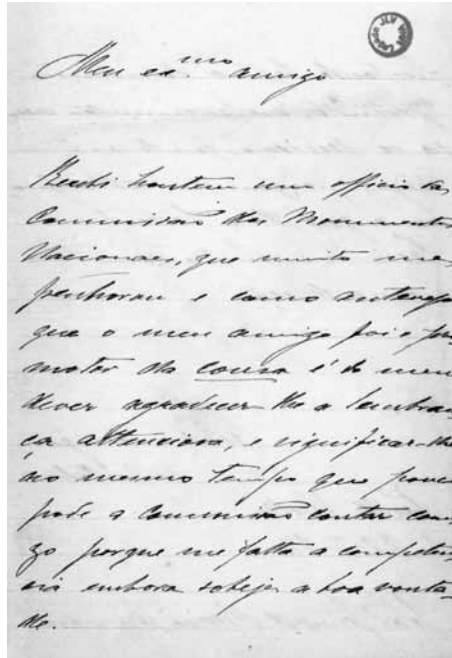 Meu ex.mo amigo
Recebi hontem um officio da
Commissão dos Monumentos
Nacionaes, que muito me
penhorou e como antevejo
que o meu amigo foi o pro
motor da cousa é do meu
dever agradecer-lhe a lembran
ça attenciosa, e significar-lhe
ao mesmo tempo que pouco
pode a Commissão contar comi
go porque me falta a competen
cia embora sobeje a boa vonta
de.